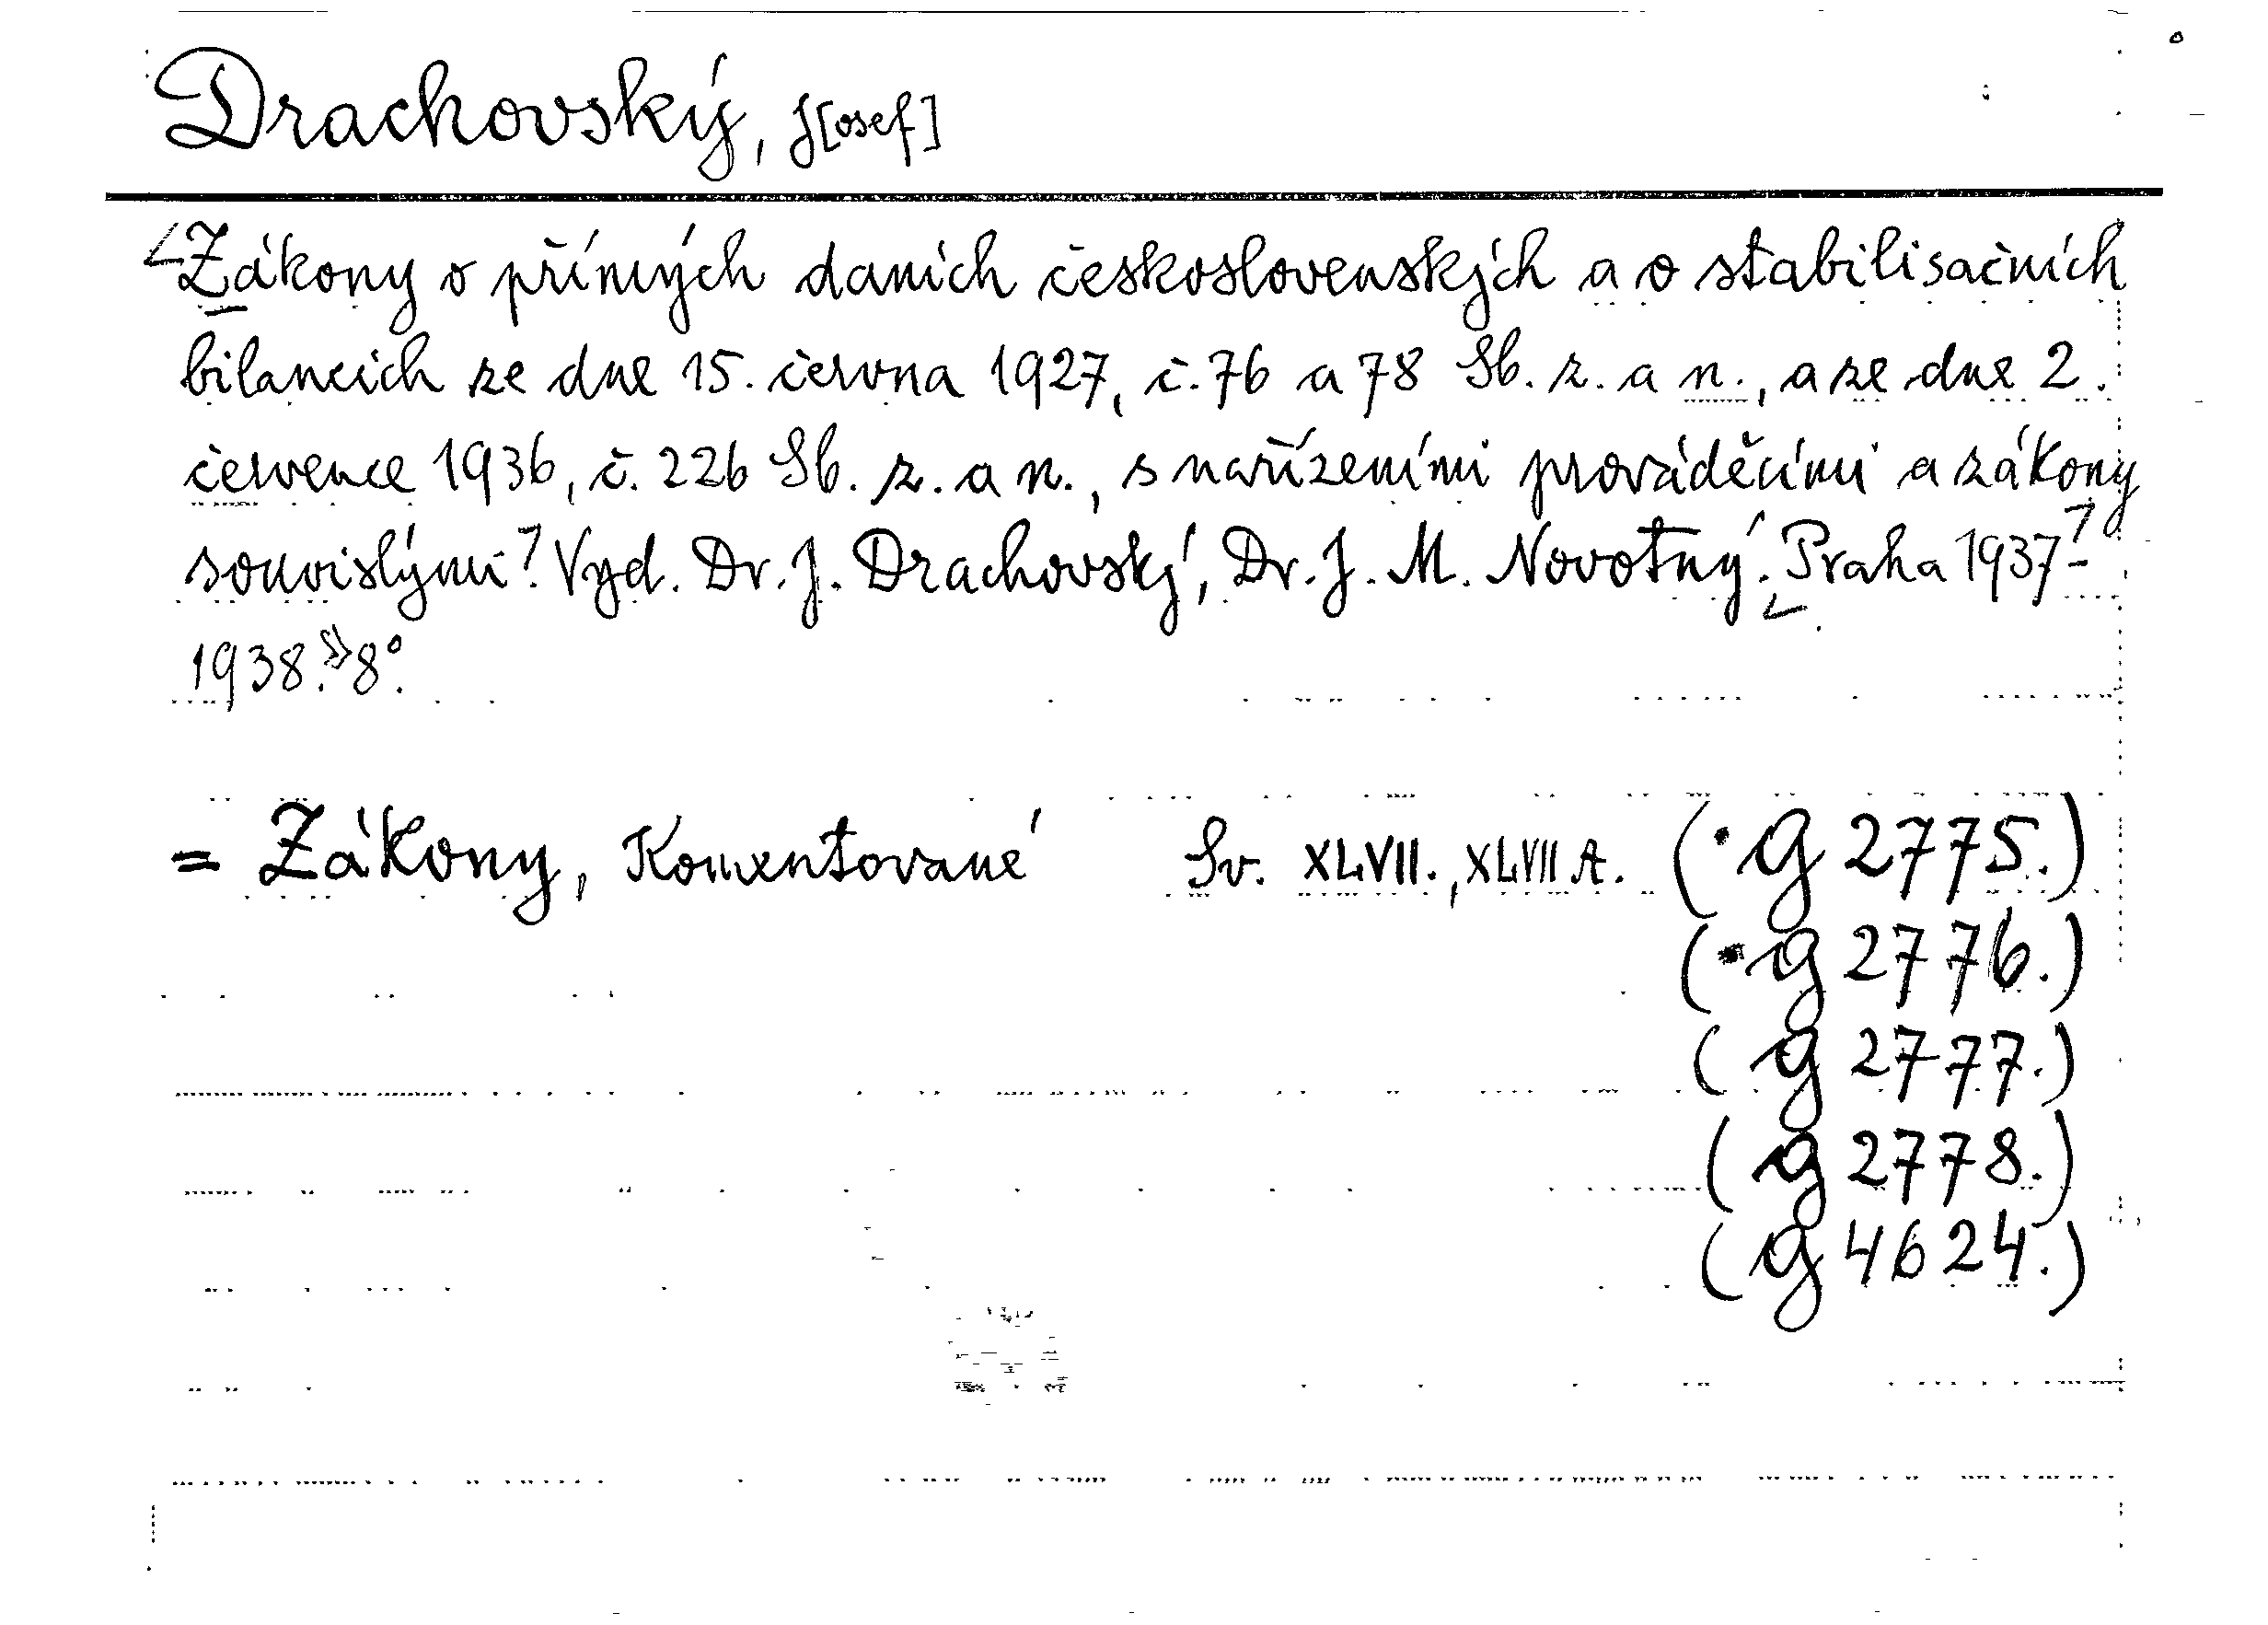 Drachovský, J[osef]
Zákony o přímých daních československých a o stabilisačních
bilancích ze dne 15. června 1927, č. 76 a 78 Sb. z. a n., a ze dne 2.
července 1936, č. 226 Sb. z. a n., s nařízeními prováděcími a zákony
souvislými. Vyd. Dr. J. Drachovský, Dr. J. M. Novotný. Praha 1937-
1938. 8°.
= Zákony, Komentované Sv. XLVII., XLVII A. (· g 2775.)
(· g 2776.)
(g 2777.)
(g 2778.)
(g 4624.)